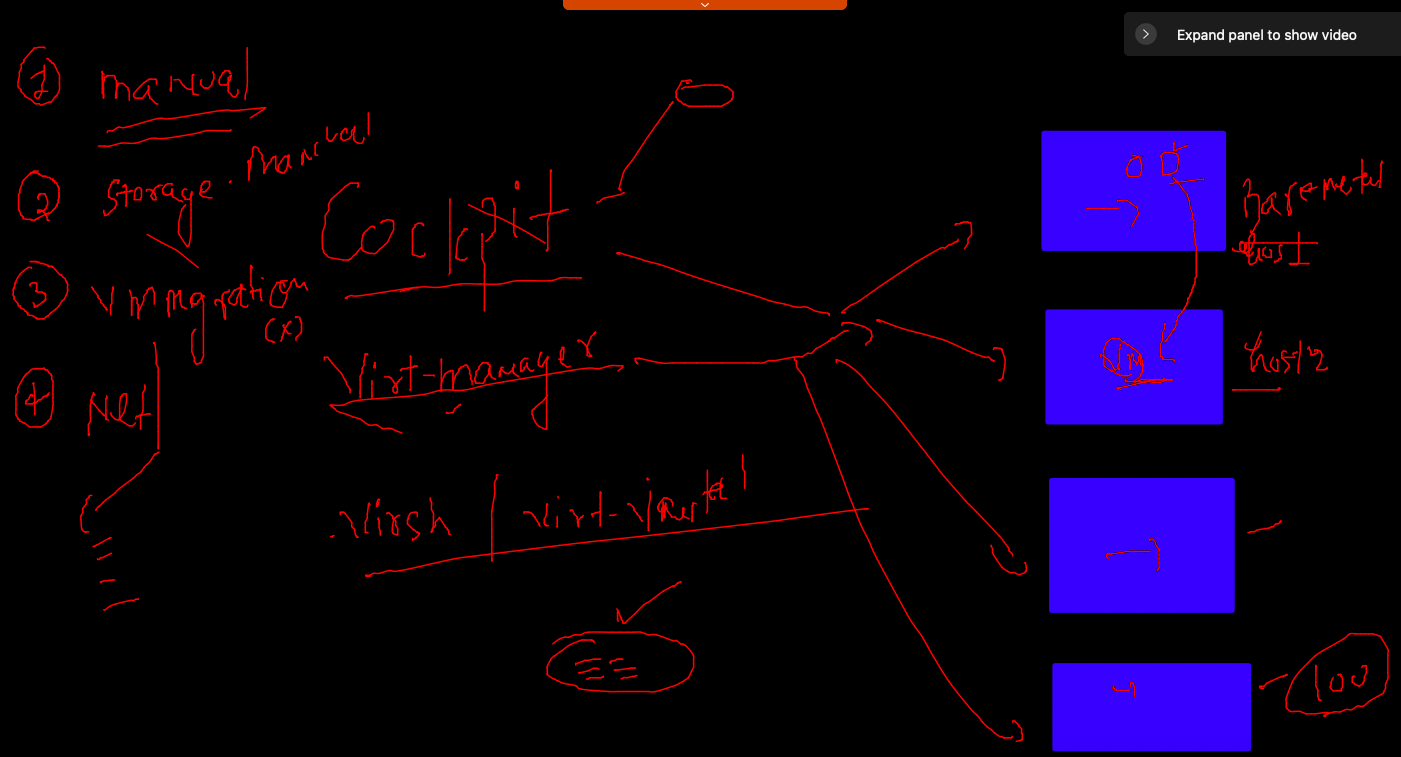 Expand panel to show video
1 manual
2 Storage. manual
3 VM migration
(x)
4 Net
Cockpit
Virt-manager
Virsh | virt-
Bare-metal
host1
VM
host2
100